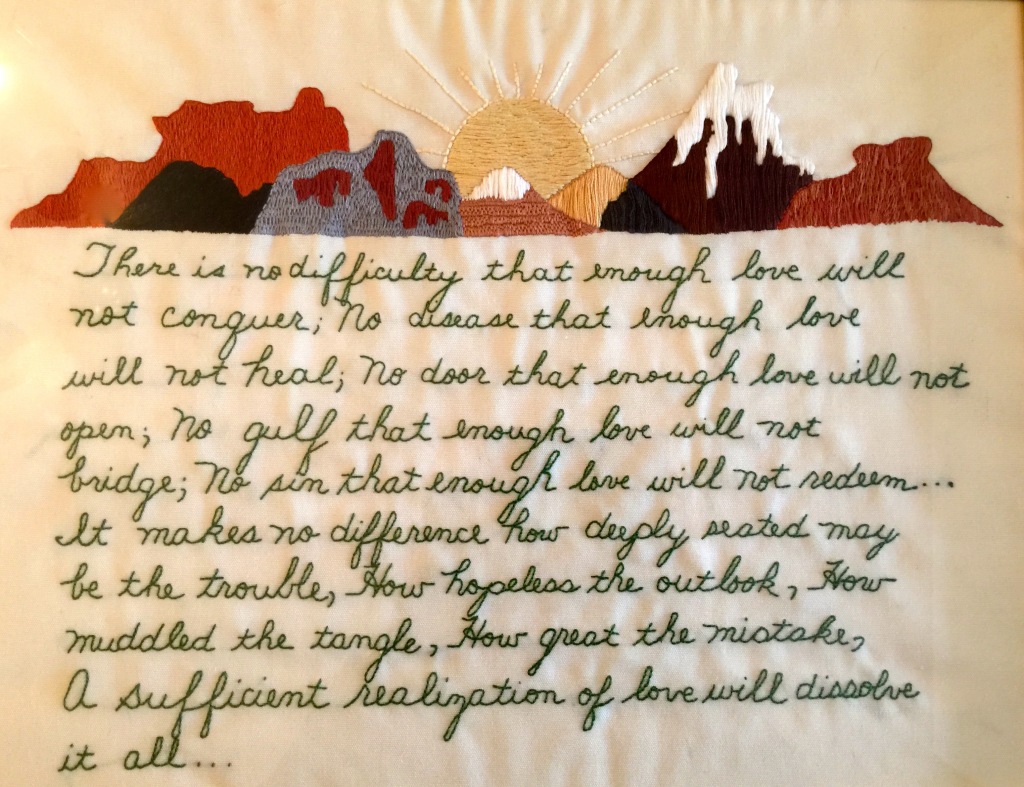 There is no difficulty that enough love will
not conquer; No disease that enough love
will not heal; No door that enough love will not
open; No gulf that enough love will not
bridge; No sin that enough love will not redeem...
It makes no difference how deeply seated may
be the trouble, How hopeless the outlook, How
muddled the tangle, How great the mistake,
A sufficient realization of love will dissolve
it all...